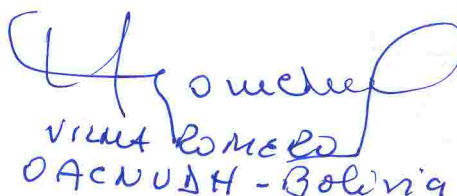 VILMA ROMERO
OACNUDH - Bolivia